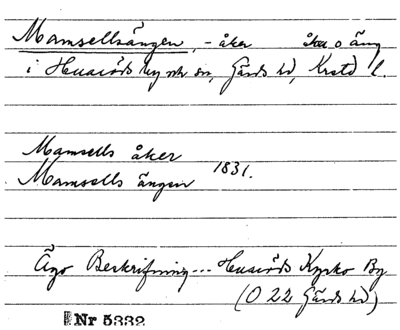 Mamsellsängen, - åker åker o äng
i Huaröds by och sn, Gärds hd, Krstd l.
Mamsells åker
Mamsells ängen 1831.
Ägo Beskrifning... Huaröds Kyrko By
(O 22 Gärds hd)
Nr 5332